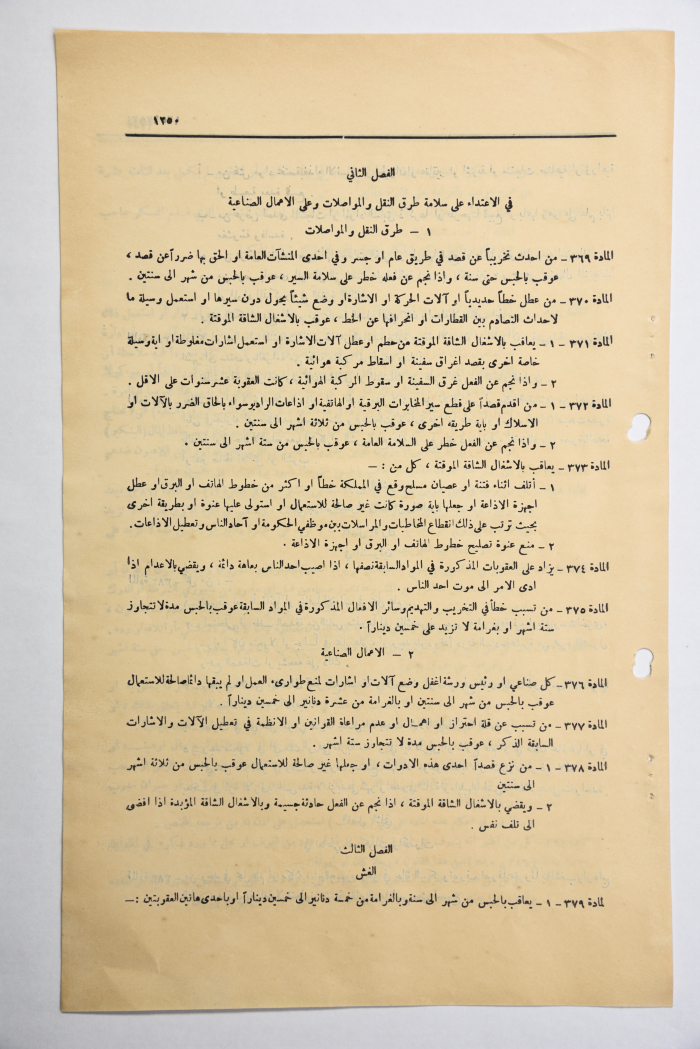 ١٢٥٠
الفصل الثاني
في الاعتداء على سلامة طرق النقل والمواصلات وعلى الاعمال الصناعية
١ – طرق النقل والمواصلات
المادة ٣٦٩ – من احدث تخريباً عن قصد في طريق عام او جسر وفي احدى المنشآت العامة او الحق بها ضرراً عن قصد ،
عوقب بالحبس حتى سنة ، واذا نجم عن فعله خطر على سلامة السير ، عوقب بالحبس من شهر الى سنتين .
المادة ٣٧٠ – من عطل خطاً حديدياً او آلات الحركة او الاشارة او وضع شيئاً يحول دون سيرها او استعمل وسيلة ما
لاحداث التصادم بين القطارات او انحرافها عن الخط ، عوقب بالاشغال الشاقة الموقتة .
المادة ٣٧١ – ١ – يعاقب بالاشغال الشاقة الموقتة من حطم او عطل آلات الاشارة او استعمل اشارات مغلوطة او اية وسيلة
خاصة اخرى بقصد اغراق سفينة او اسقاط مركبة هوائية .
٢ – واذا نجم عن الفعل غرق السفينة او سقوط المركبة الهوائية ، كانت العقوبة عشر سنوات على الاقل .
المادة ٣٧٢ – ١ – من اقدم قصداً على قطع سير المخابرات البرقية او الهاتفية او اذاعات الراديو سواء بالحاق الضرر بالآلات او
الاسلاك او باية طريقه اخرى ، عوقب بالحبس من ثلاثة اشهر الى سنتين .
٢ – واذا نجم عن الفعل خطر على السلامة العامة ، عوقب بالحبس من ستة اشهر الى سنتين .
المادة ٣٧٣ – يعاقب بالاشغال الشاقة الموقتة ، كل من : –
١ – أتلف اثناء فتنة او عصيان مسلح وقع في المملكة خطاً او اكثر من خطوط الهاتف او البرق او عطل
اجهزة الاذاعة او جعلها باية صورة كانت غير صالحة للاستعمال او استولى عليها عنوة او بطريقة اخرى
بحيث ترتب على ذلك انقطاع المخاطبات والمراسلات بين موظفي الحكومة او آحاد الناس وتعطيل الاذاعات .
٢ – منع عنوة تصليح خطوط الهاتف او البرق او اجهزة الاذاعة .
المادة ٣٧٤ – يزاد على العقوبات المذكورة في المواد السابقة نصفها ، اذا اصيب احد الناس بعاهة دائمة ، ويقضي بالاعدام اذا
ادى الامر الى موت احد الناس .
المادة ٣٧٥ – من تسبب خطأ في التخريب والتهديم وسائر الافعال المذكورة في المواد السابقة عوقب بالحبس مدة لا تتجاوز
ستة اشهر او بغرامة لا تزيد على خمسين ديناراً .
٢ – الاعمال الصناعية
المادة ٣٧٦ – كل صناعي او رئيس ورشة اغفل وضع آلات او اشارات لمنع طوارىء العمل او لم يبقها دائماً صالحة للاستعمال
عوقب بالحبس من شهر الى سنتين او بالغرامة من عشرة دنانير الى خمسين ديناراً .
المادة ٣٧٧ – من تسبب عن قلة احتراز او اهمال او عدم مراعاة القوانين او الانظمة في تعطيل الآلات والاشارات
السابقة الذكر ، عوقب بالحبس مدة لا تتجاوز ستة اشهر .
المادة ٣٧٨ – ١ – من نزع قصداً احدى هذه الادوات ، او جعلها غير صالحة للاستعمال عوقب بالحبس من ثلاثة اشهر
الى سنتين
٢ – ويقضي بالاشغال الشاقة الموقتة ، اذا نجم عن الفعل حادثة جسيمة وبالاشغال الشاقة المؤبدة اذا افضى
الى تلف نفس .
الفصل الثالث
الغش
لمادة ٣٧٩ – ١ – يعاقب بالحبس من شهر الى سنة وبالغرامة من خمسة دنانير الى خمسين ديناراً او باحدى هاتين العقوبتين : –